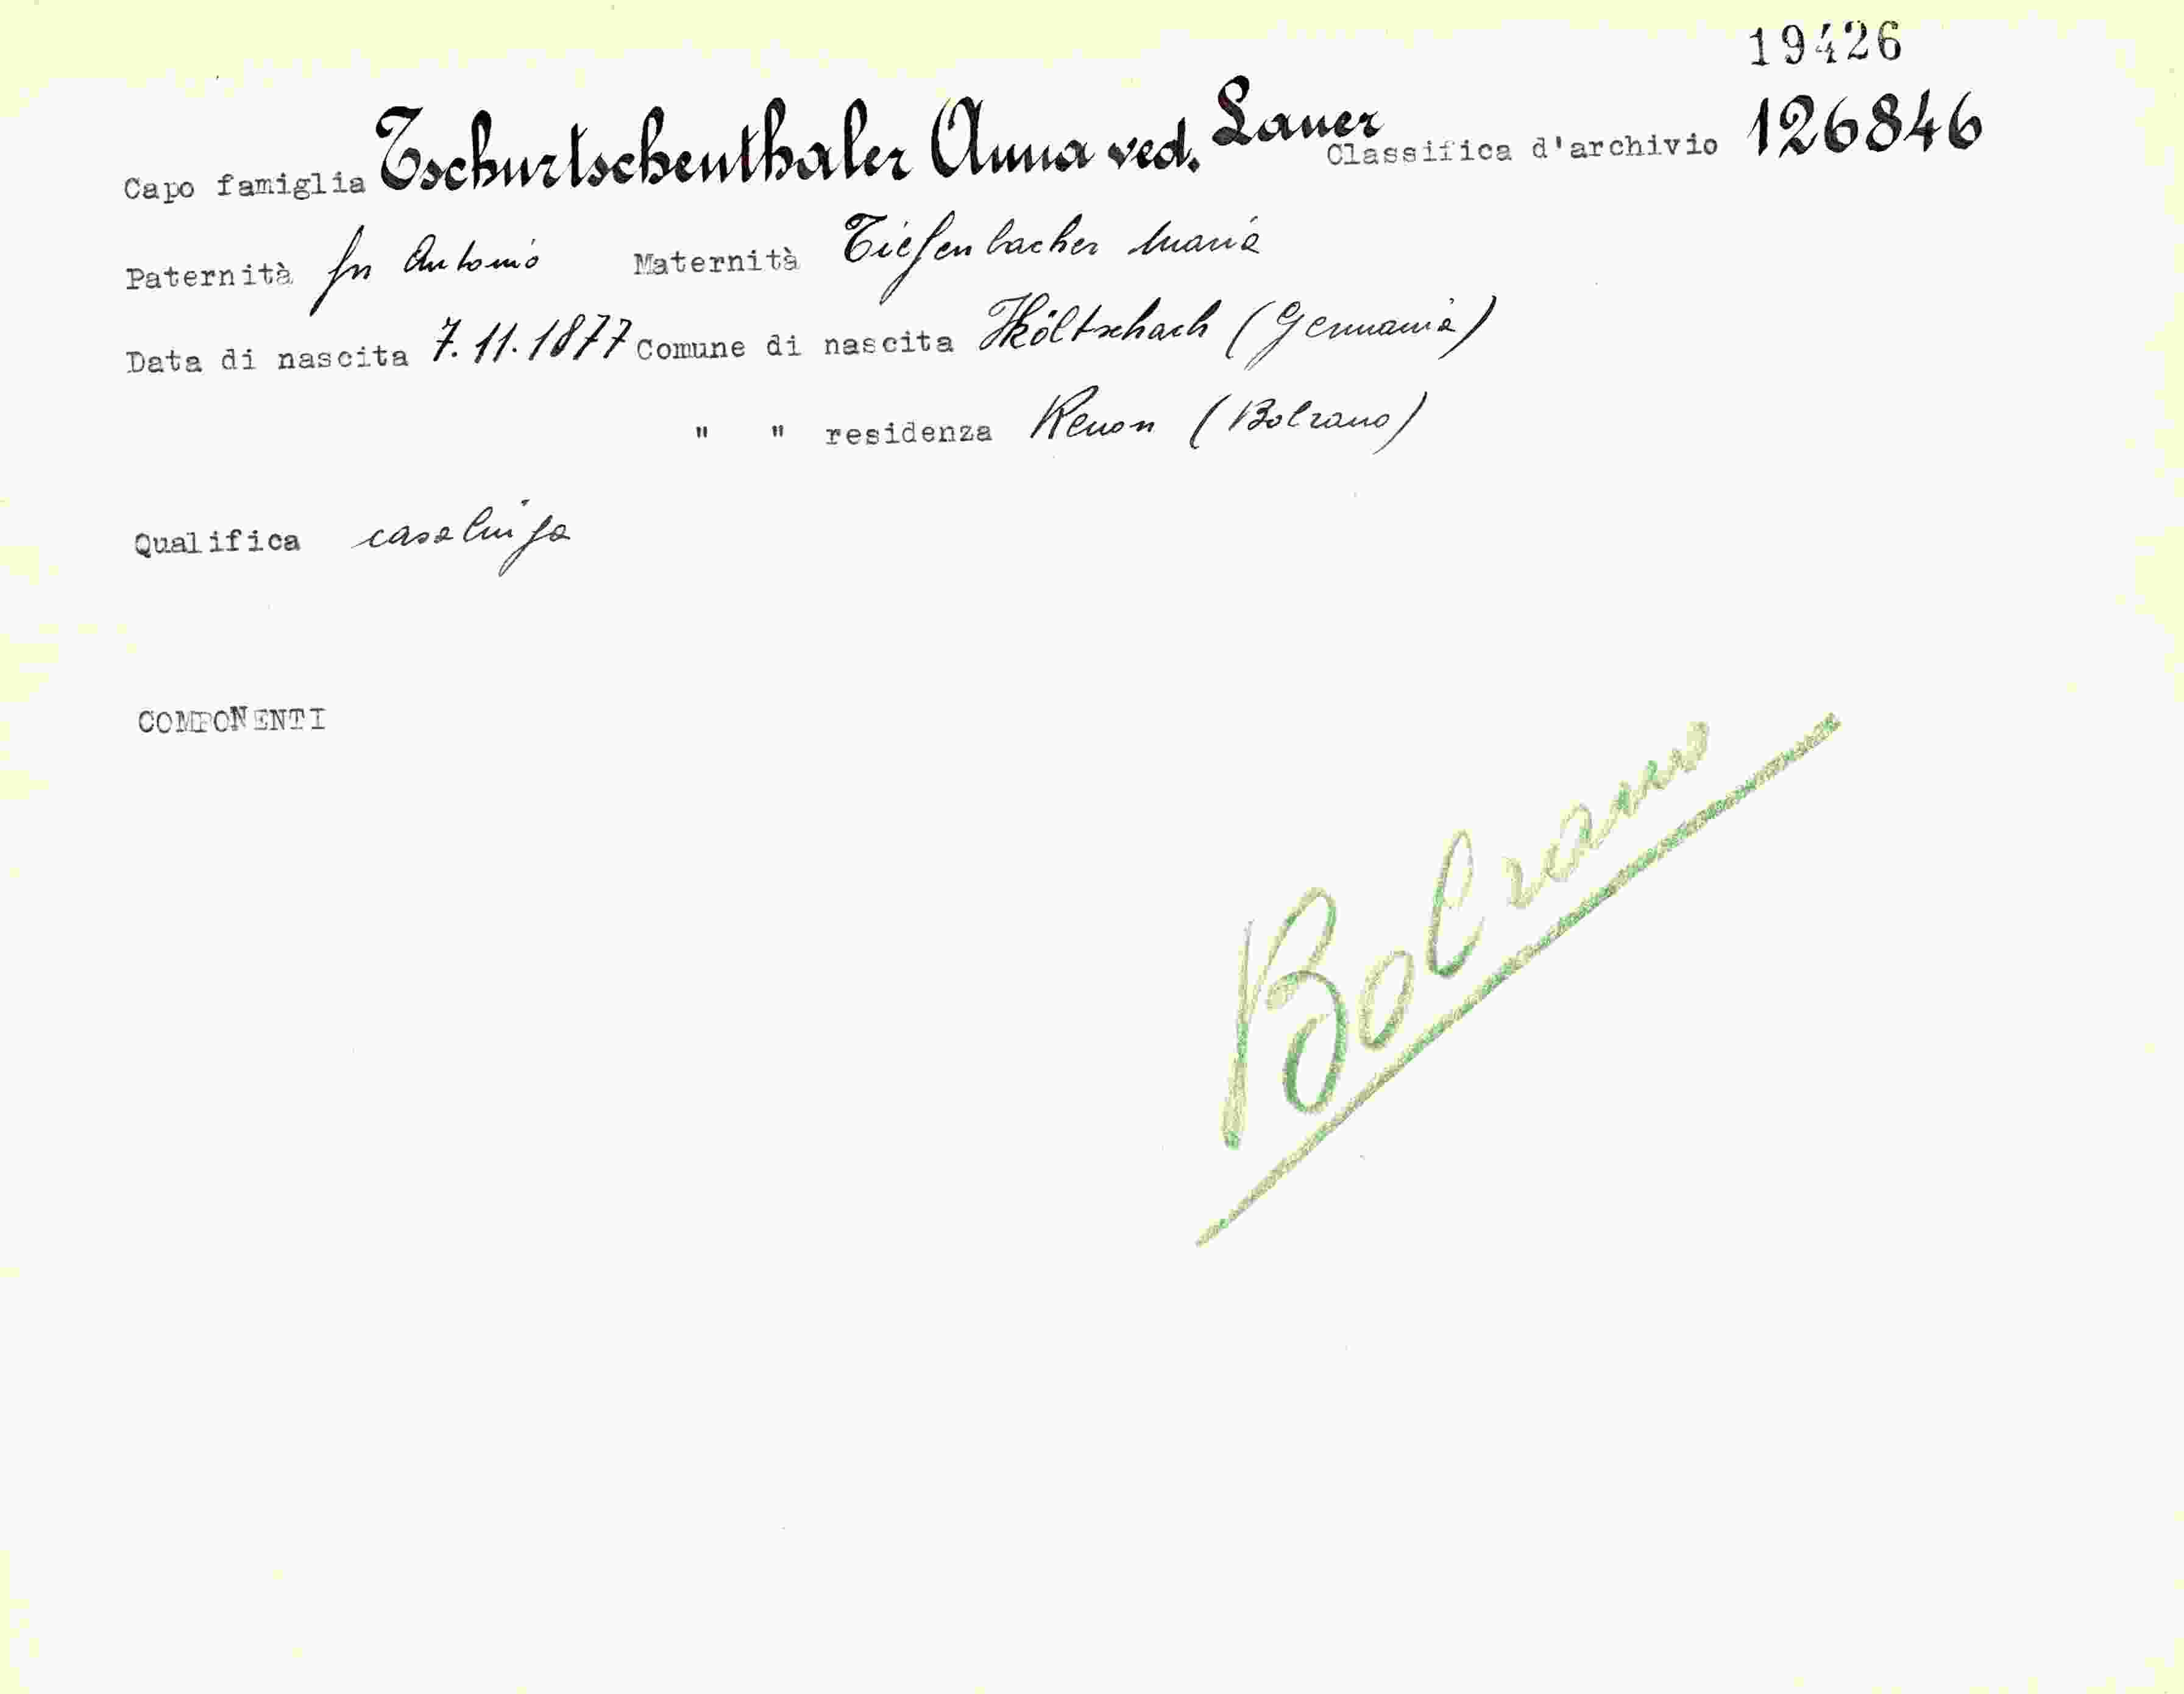 19426
Capo famiglia Tschurtschenthaler Anna ved. Lauer Classifica d'archivio 126846
Paternità fu Antonio Maternità Tiefenbacher Maria
Data di nascita 7.11.1877 Comune di nascita Költschach (Germania)
" " residenza Renon (Bolzano)
Qualifica casalinga
COMPONENTI
Bolzano